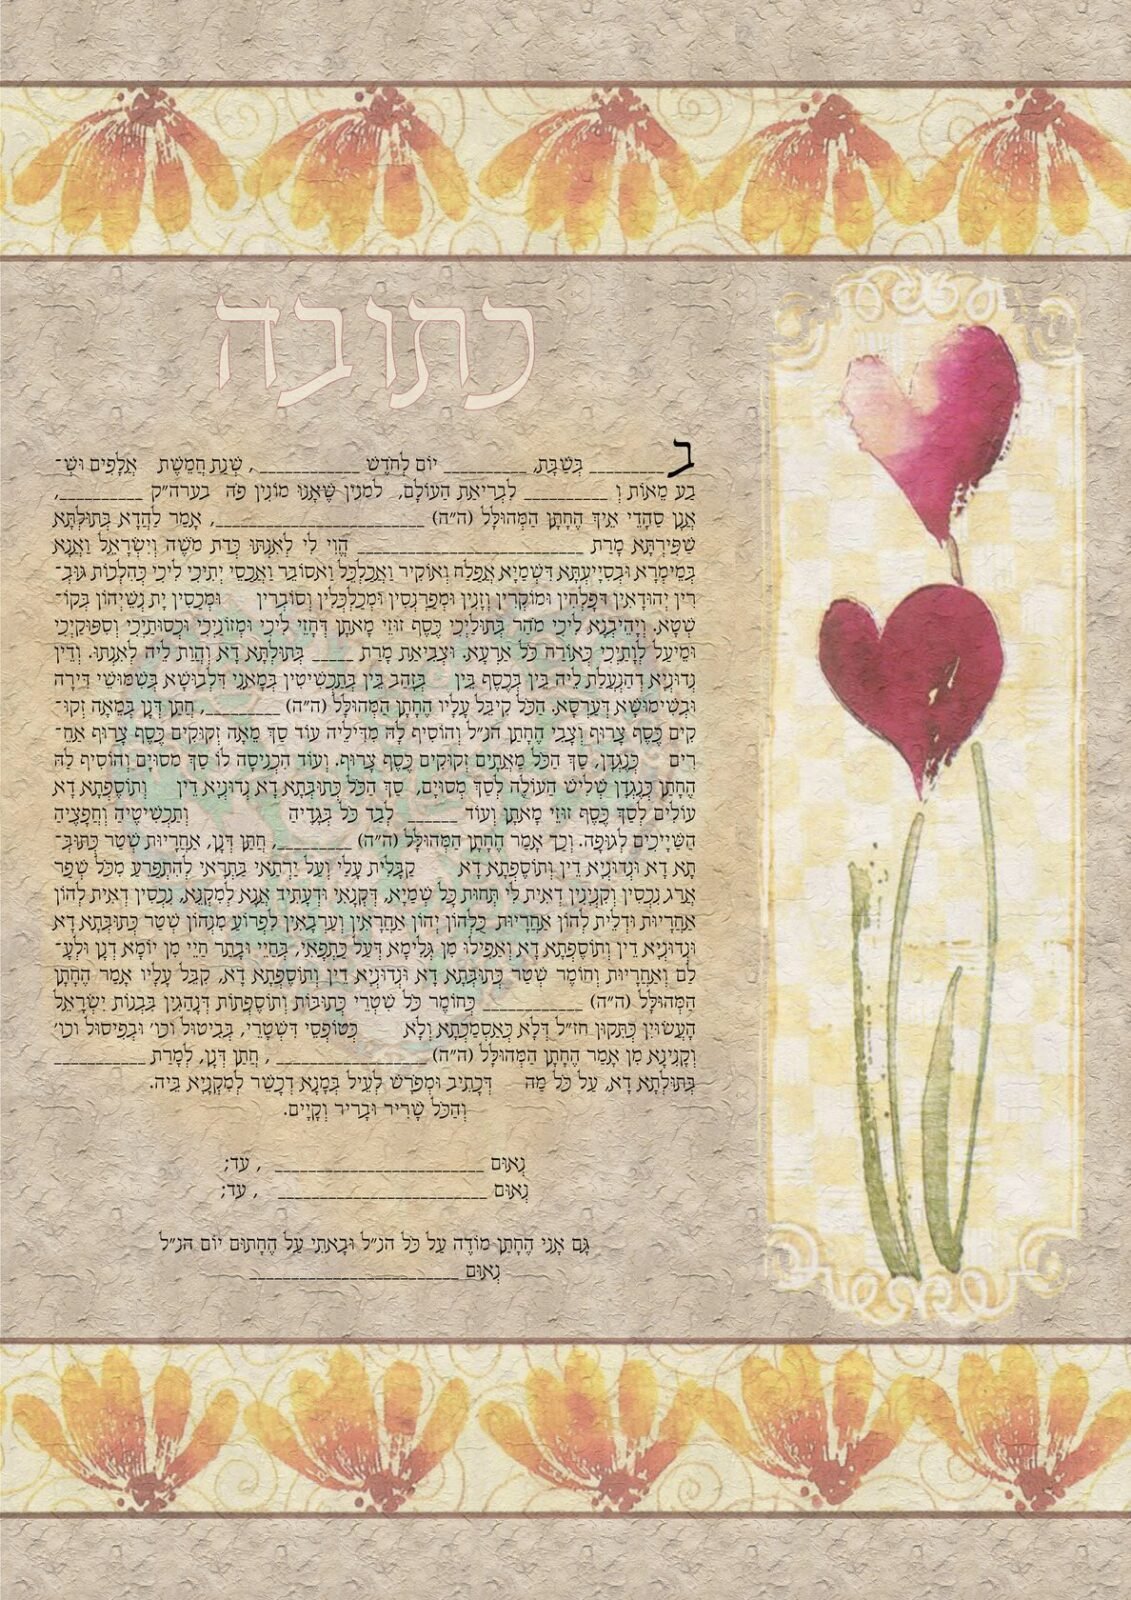 כתובה
ב_________ בְּשַׁבָּת, __________ יוֹם לְחֹדֶשׁ ____________ , שְׁנַת חֲמֵשֶׁת אֲלָפִים וּשְׁ־
בַע מֵאוֹת וְ __________ לִבְרִיאַת הָעוֹלָם, לְמִנְיַן שֶׁאָנוּ מוֹנִין פֹּה בערה״ק __________,
אֲנַן סַהֲדֵי אֵיךְ הֶחָתָן הַמְּהוּלָּל (ה״ה) _________________________, אֲמַר לַהֲדָא בְּתוּלְתָּא
שַׁפִּירְתָּא מָרַת ___________________________ הֱוִי לִי לְאִנְתּוּ כְּדַת מֹשֶׁה וְיִשְׂרָאֵל וַאֲנָא
בְּמֵימְרָא וּבְסִיַּיעְתָּא דִּשְׁמַיָּא אֶפְלַח וְאוֹקִיר וַאֲכַלְכֵּל וַאֲסוֹבֵר וַאֲכַסֵּי יְתִיכִי לִיכִי כְּהִלְכוֹת גּוּבְ־
רִין יְהוּדָאִין דִּפַלְחִין וּמוֹקְרִין וְזָנִין וּמְפַרְנְסִין וּמְכַלְכְּלִין וְסוֹבְרִין וּמְכַסִּין יַת נְשֵׁיהוֹן בְּקוֹ־
שְׁטָא. וְיָהֵיבְנָא לִיכִי מֹהַר בְּתוּלַיְכִי כֶּסֶף זוּזֵי מָאתָן דְּחָזֵי לִיכִי וּמְזוֹנַיְכִי וּכְסוּתַיְכִי וְסִפּוּקַיְכִי
וּמֵיעַל לְוָתַיְכִי כְּאוֹרַח כָּל אַרְעָא. וּצְבִיאַת מָרַת _____ בְּתוּלְתָּא דָא וַהֲוַת לֵיהּ לְאִנְתּוּ. וְדֵין
נְדוּנְיָא דְּהַנְעֵלַת לֵיהּ בֵּין בְּכֶסֶף בֵּין בְּזָהָב בֵּין בְּתַכְשִׁיטִין בְּמָאנֵי דִּלְבוּשָׁא בְּשִׁמּוּשֵׁי דִירָה
וּבְשִׁימוּשָׁא דְעַרְסָא. הַכֹּל קִיבֵּל עָלָיו הֶחָתָן הַמְּהוּלָּל (ה״ה) _________, חֲתַן דְּנָן בְּמֵאָה זְקוּ־
קִים כֶּסֶף צָרוּף וְצָבִי הֶחָתָן הנ״ל וְהוֹסִיף לָהּ מִדִּילֵיהּ עוֹד סַךְ מֵאָה זְקוּקִים כֶּסֶף צָרוּף אֲחֵ־
רִים כְּנֶגְדָּן, סַךְ הַכֹּל מָאתַיִם זְקוּקִים כֶּסֶף צָרוּף. וְעוֹד הִכְנִיסָה לוֹ סַךְ מְסוּיָּם וְהוֹסִיף לָהּ
הֶחָתָן כְּנֶגְדָּן שְׁלִישׁ הָעוֹלֶה לְסַךְ מְסוּיָּם, סַךְ הַכֹּל כְּתוּבְּתָא דָא נְדוּנְיָא דֵין וְתוֹסֶפְתָּא דָא
עוֹלִים לְסַךְ כֶּסֶף זוּזֵי מָאתָן וְעוֹד ______ לְבַד כֹּל בְּגָדֶיהָ וְתַכְשִׁיטֶיהָ וַחֲפָצֶיהָ
הַשַּׁיָּיכִים לְגוּפָהּ. וְכָךְ אָמַר הֶחָתָן הַמְּהוּלָּל (ה״ה) _________, חֲתַן דְּנָן, אַחֲרָיוּת שְׁטַר כְּתוּבְּ־
תָא דָא וּנְדוּנְיָא דֵין וְתוֹסֶפְתָּא דָא קַבָּלִית עָלַי וְעַל יָרְתַאי בַּתְרָאִי לְהִתְפָּרַע מִכָּל שְׁפַר
אֲרַג נִכְסִין וְקִנְיָנִין דְּאִית לִי תְּחוֹת כָּל שְׁמַיָּא, דִּקְנָאִי וּדְעָתִיד אֲנָא לְמִקְנָא, נִכְסִין דְּאִית לְהוֹן
אַחֲרָיוּת וּדְלֵית לְהוֹן אַחֲרָיוּת כֻּלְּהוֹן יְהוֹן אַחְרָאִין וְעַרְבָאִין לִפְרוֹעַ מִנְּהוֹן שְׁטַר כְּתוּבְּתָא דָא
וּנְדוּנְיָא דֵין וְתוֹסֶפְתָּא דָא וְאֲפִילוּ מִן גְּלִימָא דְּעַל כַּתְפָאִי, בְּחַיַּי וּבָתַר חַיַּי מִן יוֹמָא דְנָן וּלְעָ־
לַם וְאַחֲרָיוּת וְחוֹמֶר שְׁטַר כְּתוּבְּתָא דָא וּנְדוּנְיָא דֵין וְתוֹסֶפְתָּא דָא, קִבֵּל עָלָיו אָמַר הֶחָתָן
הַמְּהוּלָּל (ה״ה) ____________ כְּחוֹמֶר כָּל שִׁטְרֵי כְּתוּבּוֹת וְתוֹסֶפְתוֹת דְּנָהֲגִין בִּבְנוֹת יִשְׂרָאֵל
הָעֲשׂוּיִן כְּתִקּוּן חז״ל דְּלָא כְּאַסְמַכְתָּא וְלָא כְּטוֹפְסֵי דִשְׁטָרֵי, בְּבִיטוּל וכו׳ וּבִפִּיסוּל וכו׳
וְקָנִינָא מִן אָמַר הֶחָתָן הַמְּהוּלָּל (ה״ה) __________________ , חֲתַן דְּנָן, לְמָרַת ___________
בְּתוּלְתָּא דָא, עַל כָּל מַה דִּכְתִיב וּמְפֹרָשׁ לְעֵיל בְּמָנָא דְכָשֵׁר לְמִקְנְיָא בֵּיהּ.
וְהַכֹּל שָׁרִיר וּבָרִיר וְקַיָּים.
נְאוּם _________________________ , עֵד;
נְאוּם _________________________ , עֵד;
גַּם אֲנִי הֶחָתָן מוֹדֶה עַל כָּל הנ״ל וּבָאתִי עַל הֶחָתוּם יוֹם הנ״ל
נְאוּם _________________________